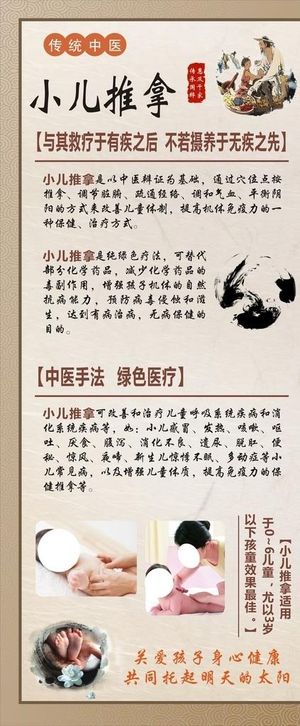 传统中医
小儿推拿
惠及千家
传承国粹
【与其救疗于有疾之后 不若摄养于无疾之先】
小儿推拿是以中医辩证为基础，通过穴位点按
推拿、调节脏腑、疏通经络、调和气血、平衡阴
阳的方式来改善儿童体制，提高机体免疫力的一
种保健、治疗方式。
小儿推拿是纯绿色疗法，可替代
部分化学药品，减少化学药品的
毒副作用，增强孩子机体的自然
抗病能力，预防病毒侵蚀和滋
生，达到有病治病，无病保健的
目的。
【中医手法 绿色医疗】
小儿推拿可改善和治疗儿童呼吸系统疾病和消
化系统疾病等，如：小儿感冒、发热、咳嗽、呕
吐、厌食、腹泻、消化不良、遗尿、脱肛、便
秘、惊风、夜啼、新生儿惊悸不眠、多动症等小
儿常见病，以及增强儿童体质，提高免疫力的保
健推拿等。
【小儿推拿适用
于0~6儿童，尤以3岁
以下孩童效果最佳。】
关爱孩子身心健康
共同托起明天的太阳